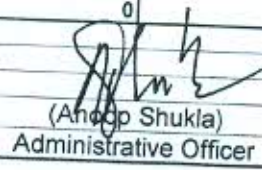 0
(Anoop Shukla)
Administrative Officer